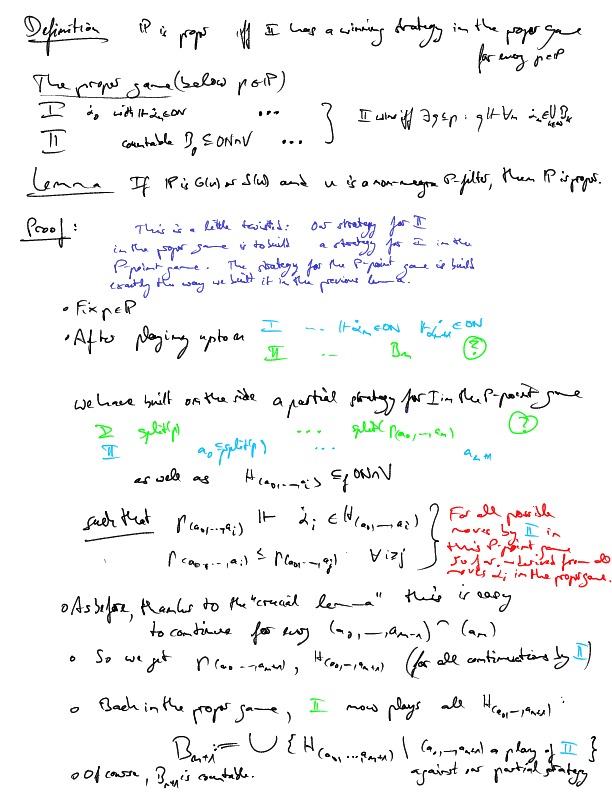 Definition ℙ is proper iff II has a winning strategy in the proper game
for every p∈ℙ
The proper game (below p∈ℙ)
I α̇₀ with ⊩ α̇₀∈ON ...
II countable B₀ ⊆ ON∩V ...
} II wins iff ∃q≤p: q ⊩ ∀n α̇ₙ ∈ ⋃_{k∈ω} B_k
Lemma If ℙ is G(u) or S(u) and u is a non-meagre P-filter, then ℙ is proper.
Proof: This is a little twisted: Our strategy for II
in the proper game is to build a strategy for I in the
P-point game. The strategy for the P-point game is built
exactly the way we built it in the previous lemma.
• Fix p∈ℙ
• After playing up to n I ... ⊩ α̇ₙ∈ON ⊩ α̇ₙ₊₁∈ON
II ... Bₙ ?
we have built on the side a partial strategy for I in the P-point game
I split(p) ... split(p_(a₀,...,aₙ)) ?
II a₀ ⊆ split(p) ... aₙ₊₁
as well as H_(a₀,...,a_i) ⊆_f ON∩V
such that p_(a₀,...,a_i) ⊩ α̇_i ∈ H_(a₀,...,a_i)
p_(a₀,...,a_i) ≤ p_(a₀,...,a_j) ∀i≥j
For all possible
moves by II in
this P-point game
so far – derived from all
moves α̇_i in the proper game.
• As before, thanks to the "crucial lemma" this is easy
to continue for every (a₀,...,aₙ₋₁)⌢(aₙ)
• So we get p_(a₀,...,aₙ₊₁), H_(a₀,...,aₙ₊₁) (for all continuations by II)
• Back in the proper game, II now plays all H_(a₀,...,aₙ₊₁):
Bₙ₊₁ := ∪ { H_(a₀,...,aₙ₊₁) | (a₀,...,aₙ₊₁) a play of II }
against our partial strategy
• Of course, Bₙ₊₁ is countable.